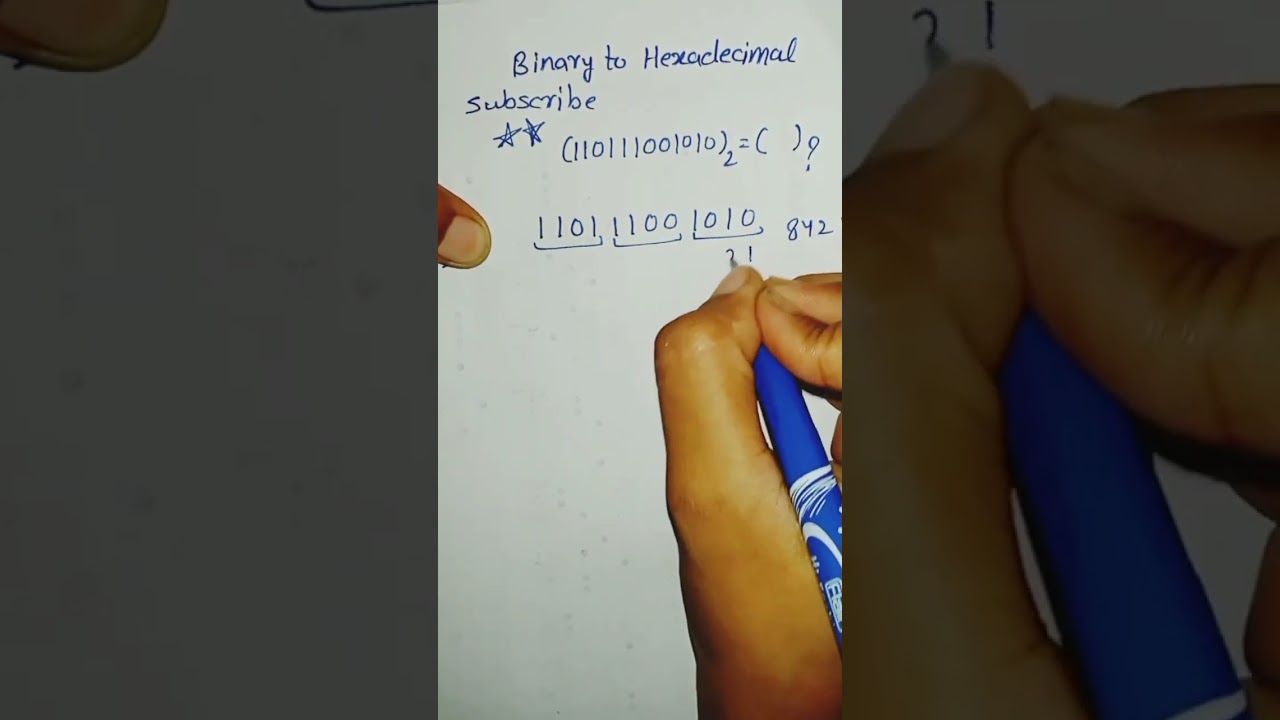 Binary to Hexadecimal
Subscribe
(110111001010)2=( )?
1101 1100 1010 842
21